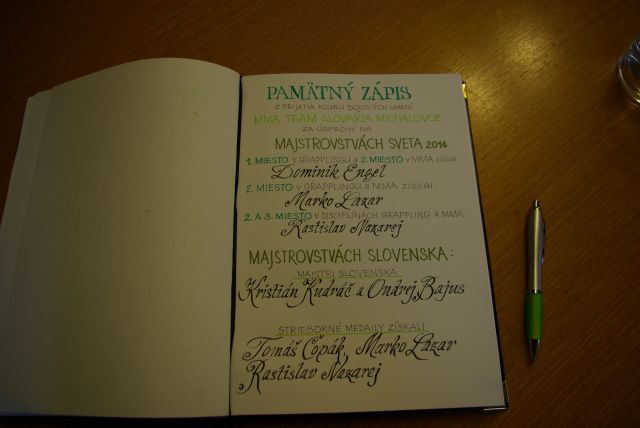 PAMÄTNÝ ZÁPIS
Z PRIJATIA KLUBU BOJOVÝCH UMENÍ
MMA TEAM SLOVAKIA MICHALOVCE
ZA ÚSPECHY NA
MAJSTROVSTVÁCH SVETA 2014
1. MIESTO V GRAPPLINGU A 2. MIESTO V MMA ZÍSKAL:
Dominik Engel
2. MIESTO V GRAPPLINGU A MMA ZÍSKAL:
Marko Lazar
2. A 3. MIESTO V DISCIPLÍNACH GRAPPLING A MMA
Rastislav Nazarej
MAJSTROVSTVÁCH SLOVENSKA:
MAJSTRI SLOVENSKA
Kristián Kudráč a Ondrej Bajus
STRIEBORNÉ MEDAILY ZÍSKALI
Tomáš Copák, Marko Lazar
Rastislav Nazarej